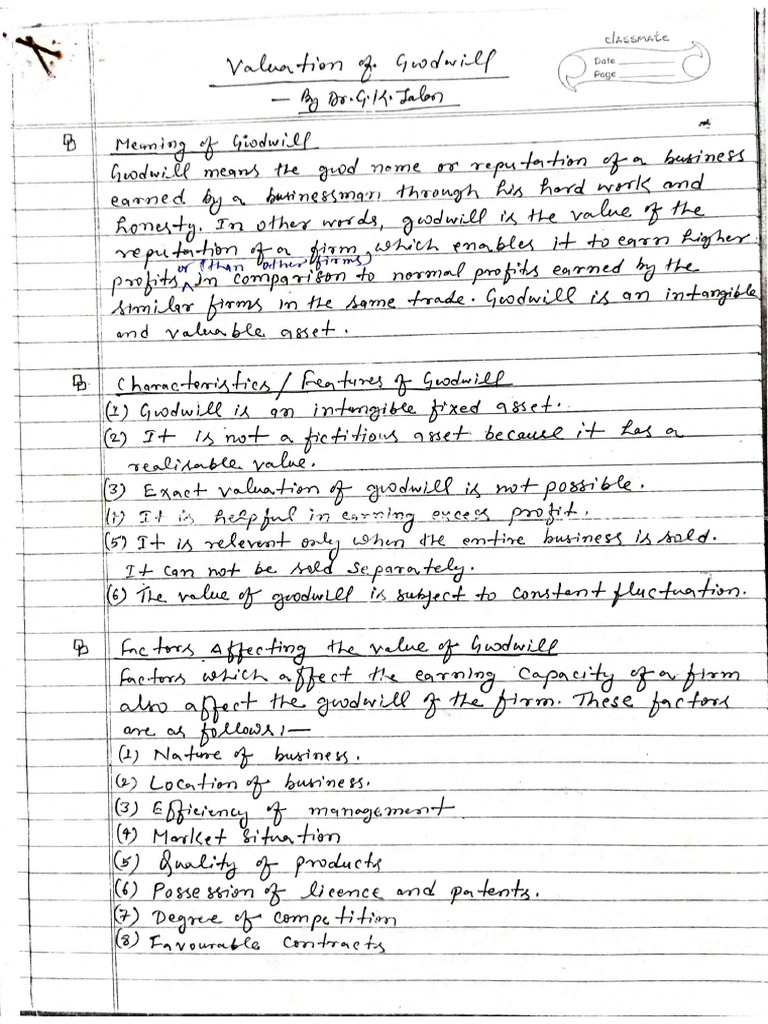 classmate
Date
Page
Valuation of Goodwill
— By Dr. G.K. Jalan
Meaning of Goodwill
Goodwill means the good name or reputation of a business
earned by a businessman through his hard work and
honesty. In other words, goodwill is the value of the
reputation of a firm which enables it to earn higher
or (than other firms)
profits in comparison to normal profits earned by the
similar firms in the same trade. Goodwill is an intangible
and valuable asset.
Characteristics / Features of Goodwill
(1) Goodwill is an intangible fixed asset.
(2) It is not a fictitious asset because it has a
realisable value.
(3) Exact valuation of goodwill is not possible.
It is helpful in earning excess profit.
(5) It is relevent only when the entire business is sold.
It can not be sold separately.
(6) The value of goodwill is subject to constant fluctuation.
Factors Affecting the value of Goodwill
Factors which affect the earning capacity of a firm
also affect the goodwill of the firm. These factors
are as follows :—
(1) Nature of business.
(2) Location of business.
(3) Efficiency of management
(4) Market Situation
(5) Quality of products
(6) Possession of licence and patents.
(7) Degree of competition
(8) Favourable contracts